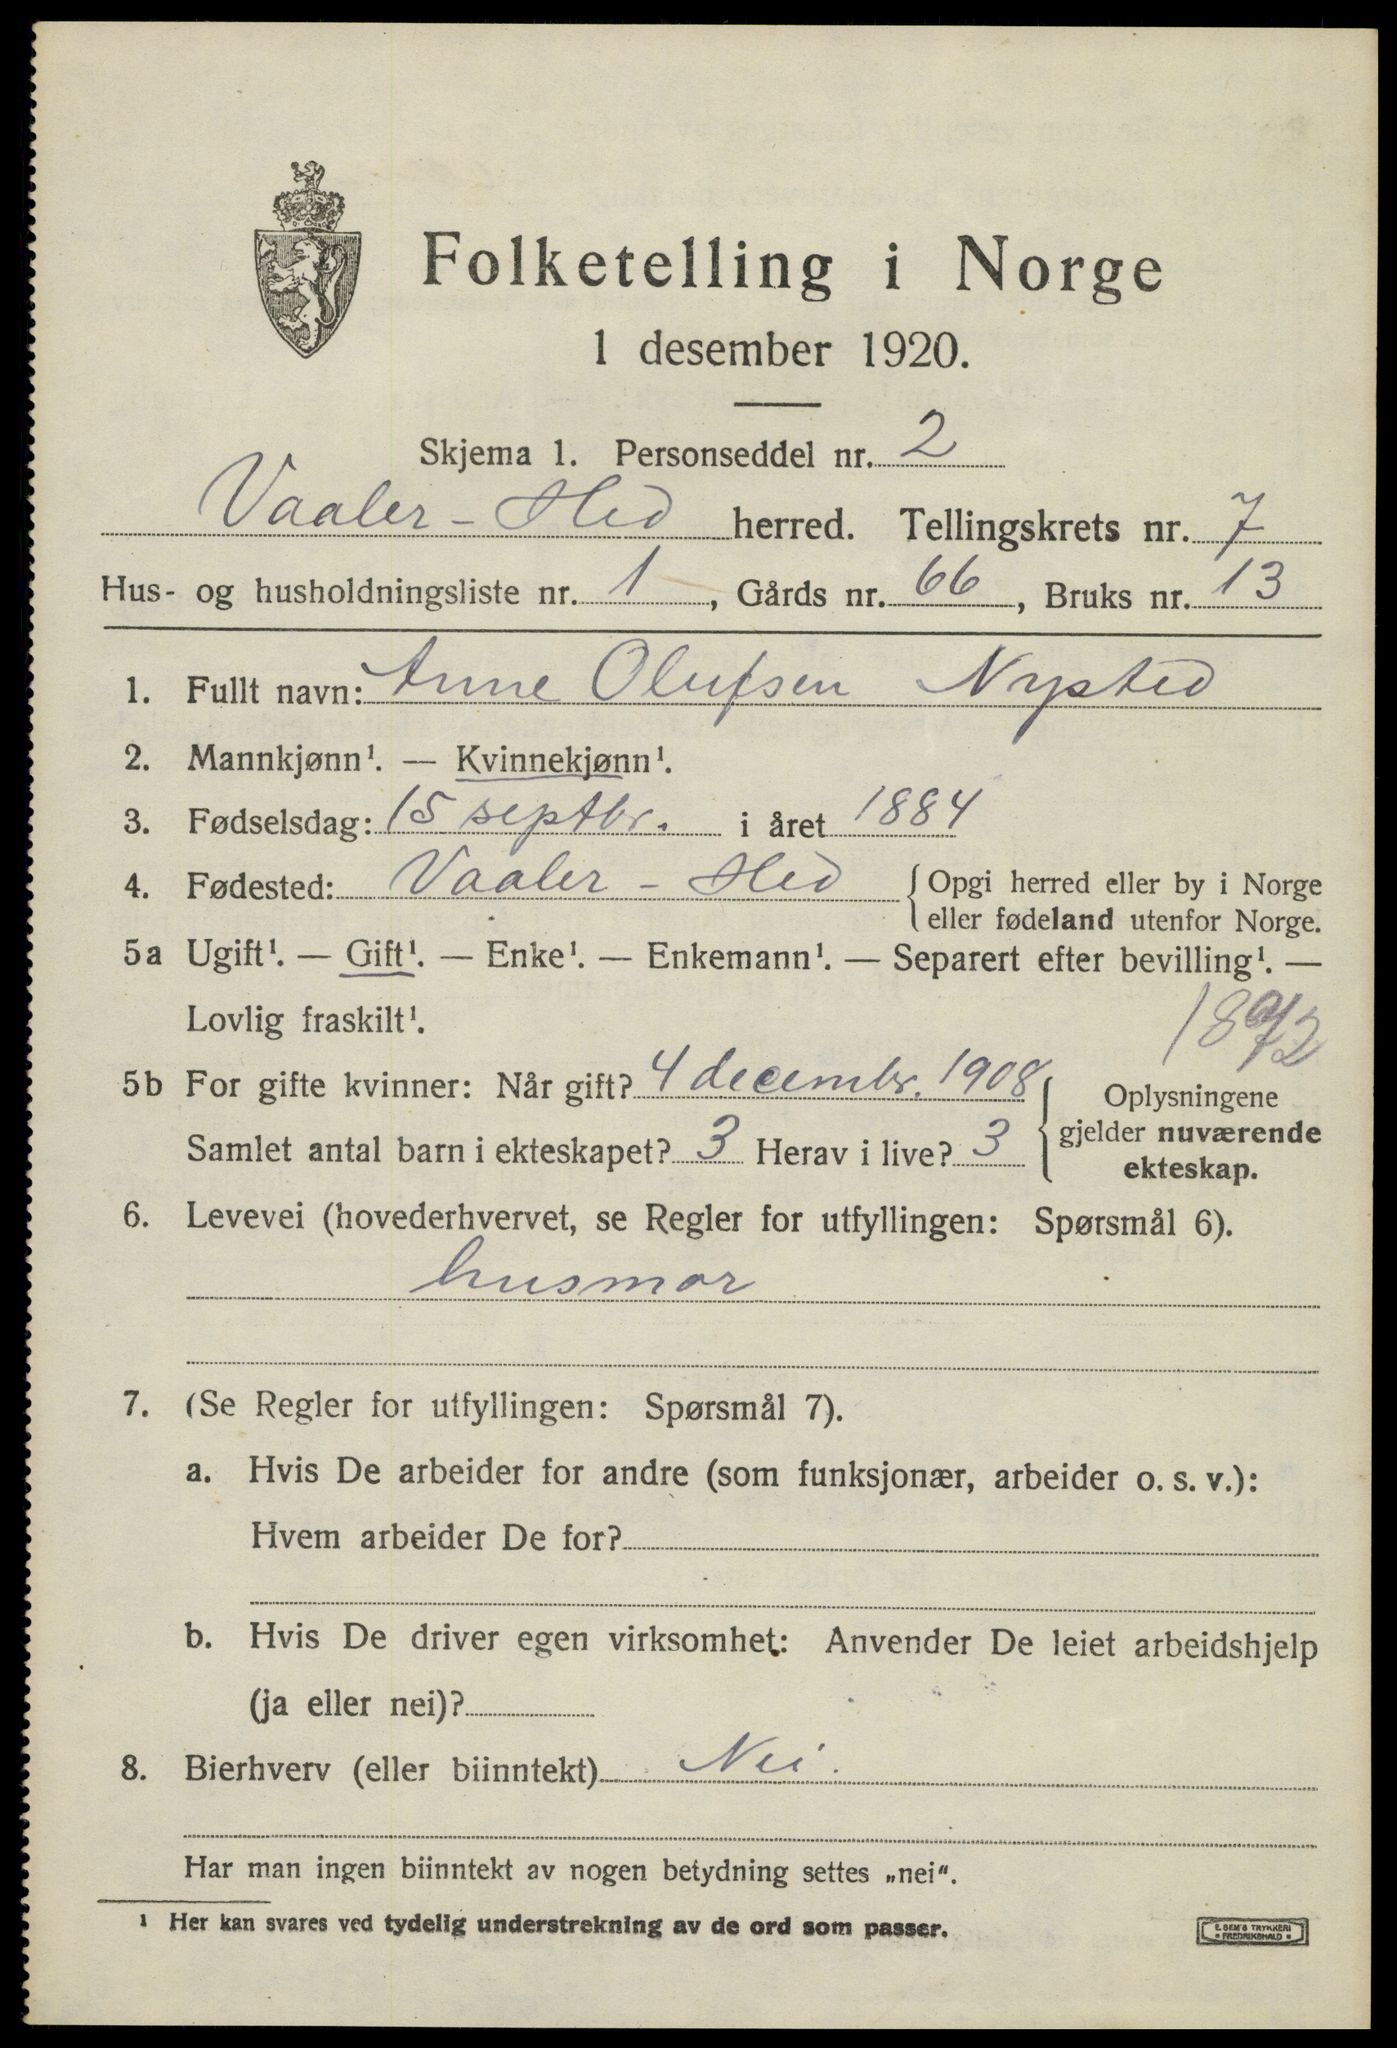 Folketelling i Norge
1 desember 1920.
Skjema 1. Personseddel nr. 2
Vaaler - Hed herred. Tellingskrets nr. 7
Hus- og husholdningsliste nr. 1, Gårds nr. 66, Bruks nr. 13
1. Fullt navn: Anne Olufsen Nysted
2. Mannkjønn¹. — Kvinnekjønn¹.
3. Fødselsdag: 15 septbr. i året 1884
4. Fødested: Vaaler - Hed { Opgi herred eller by i Norge
eller fødeland utenfor Norge.
5a Ugift¹. — Gift¹. — Enke¹. — Enkemann¹. — Separert efter bevilling¹. —
Lovlig fraskilt¹.
5b For gifte kvinner: Når gift? 4 decembr. 1908 { Oplysningene
gjelder nuværende
Samlet antal barn i ekteskapet? 3 Herav i live? 3
ekteskap.
6. Levevei (hovederhvervet, se Regler for utfyllingen: Spørsmål 6).
husmor
7. (Se Regler for utfyllingen: Spørsmål 7).
a. Hvis De arbeider for andre (som funksjonær, arbeider o. s. v.):
Hvem arbeider De for?
b. Hvis De driver egen virksomhet: Anvender De leiet arbeidshjelp
(ja eller nei)?
8. Bierhverv (eller biinntekt) Nei.
Har man ingen biinntekt av nogen betydning settes „nei“.
¹ Her kan svares ved tydelig understrekning av de ord som passer.
E. SEM'S TRYKKERI
• FREDRIKSHALD •